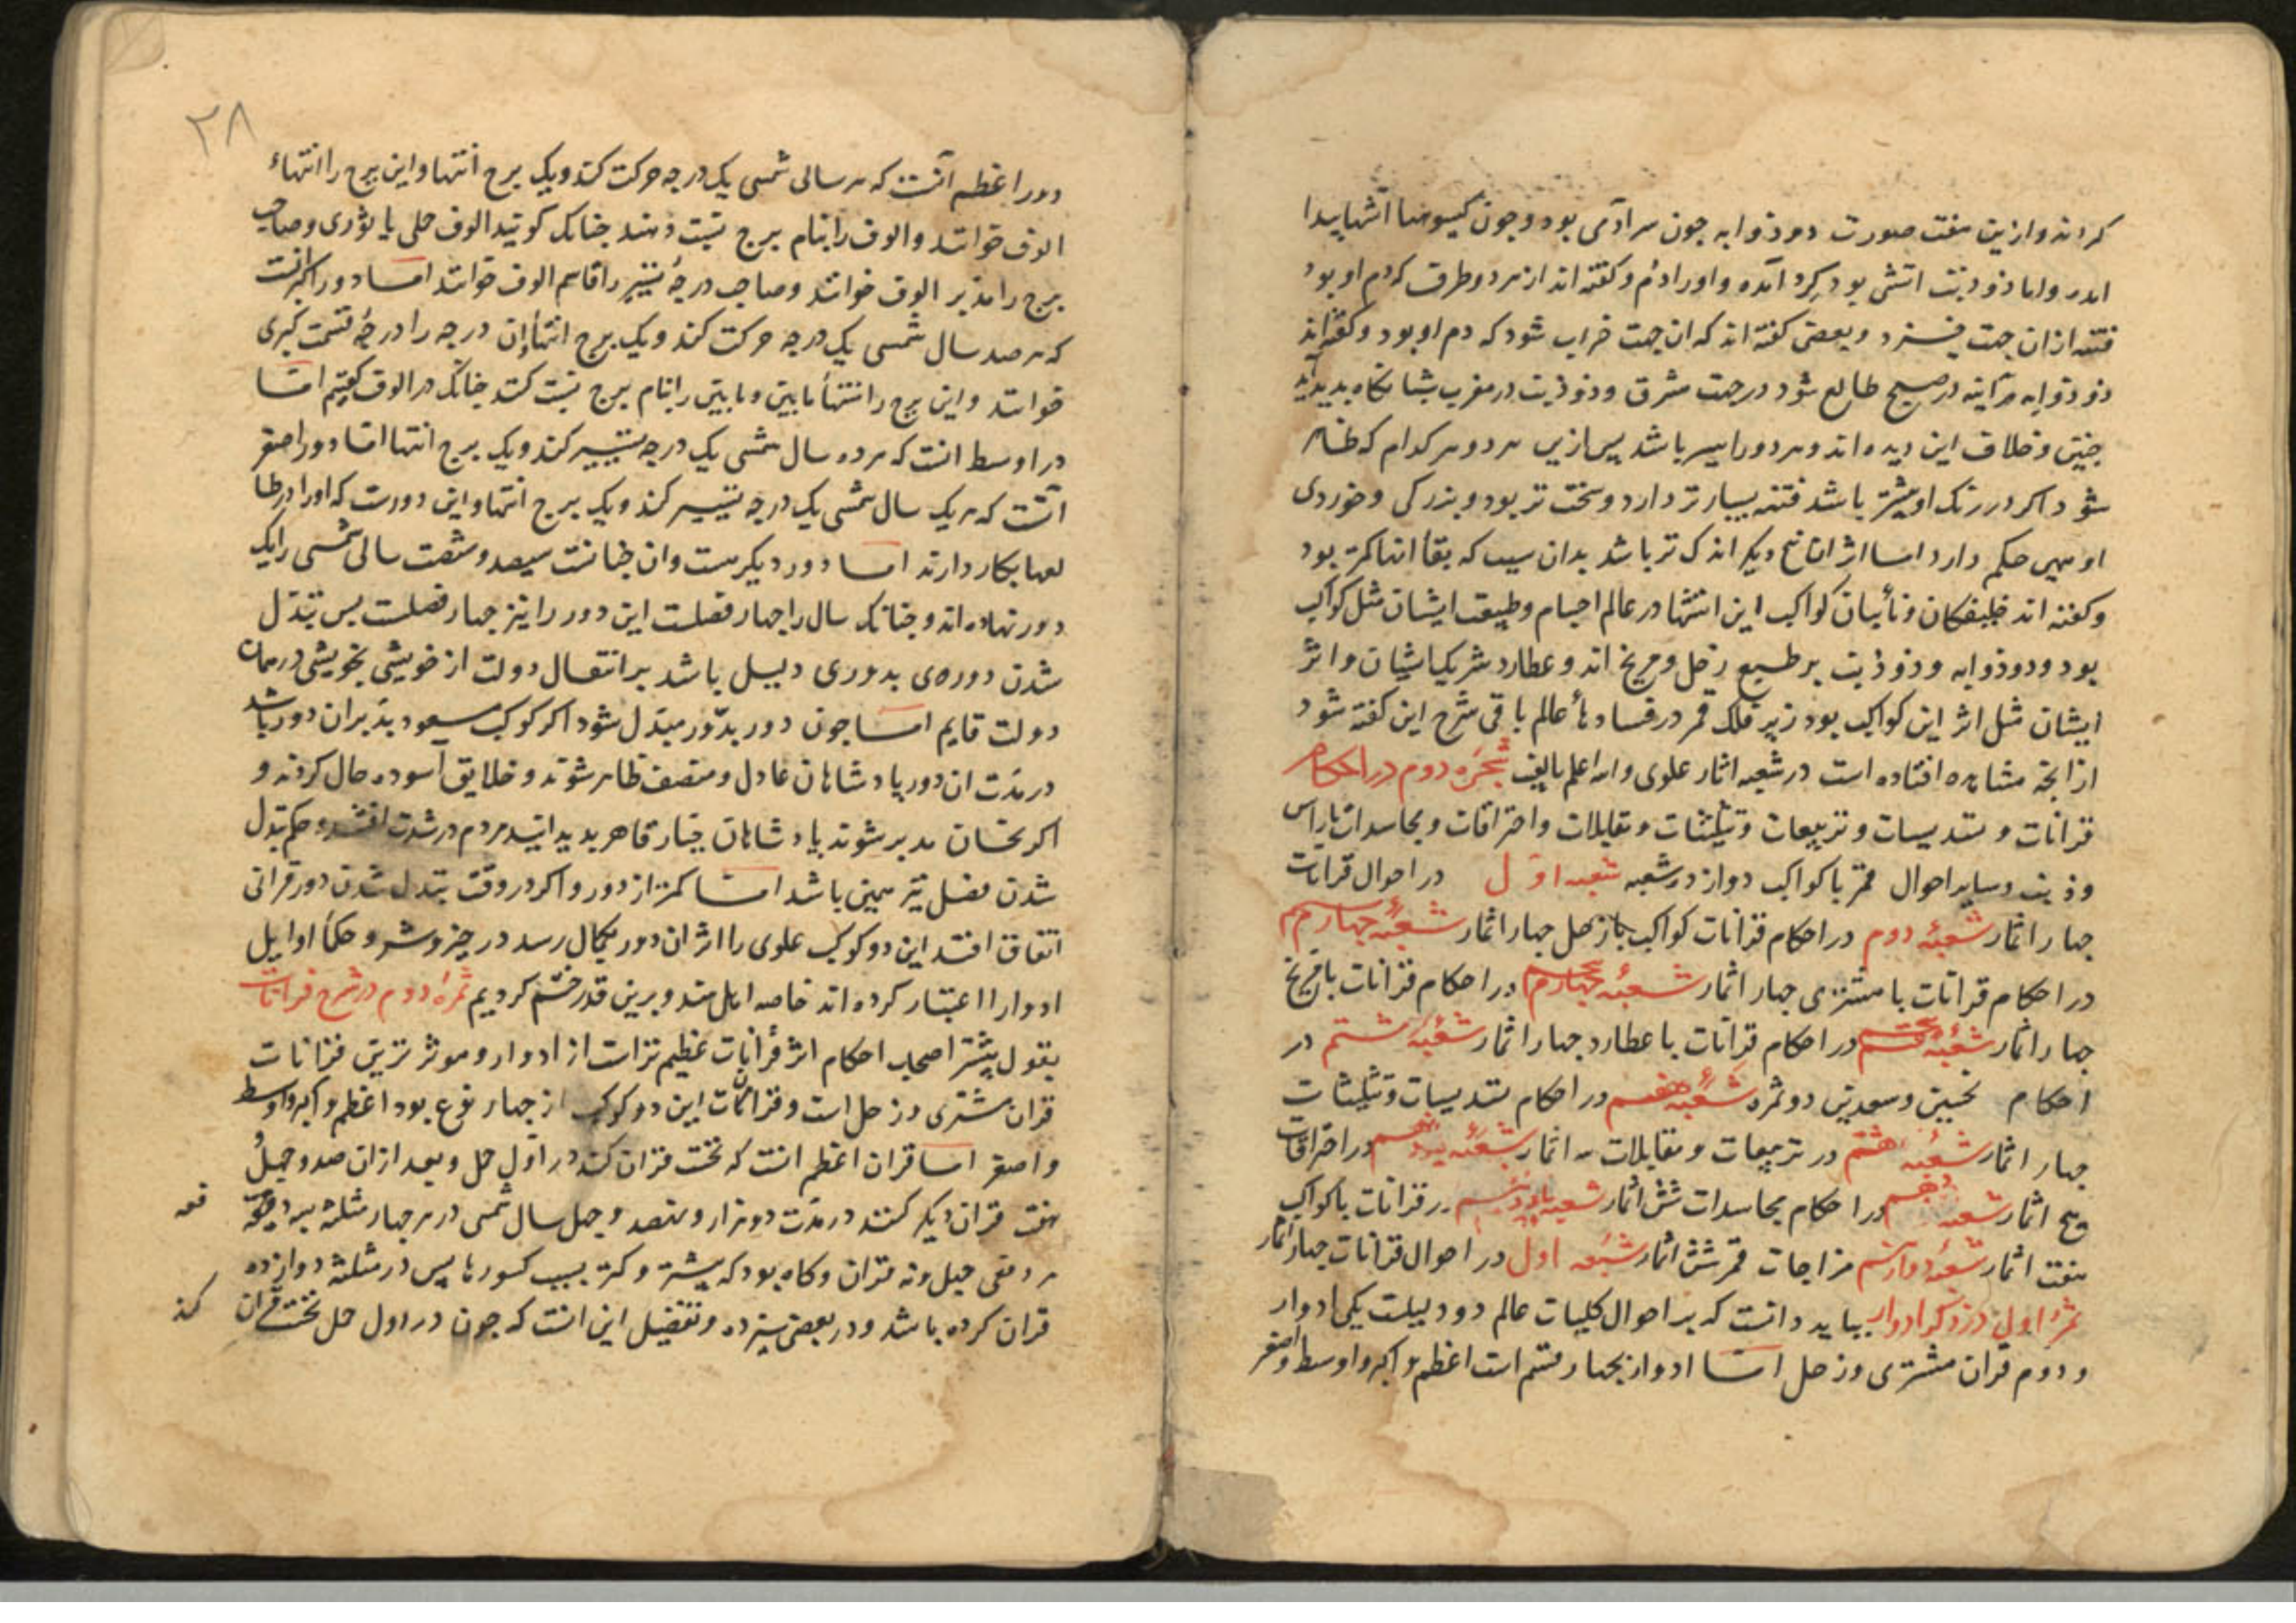 کردند و ازین هفت صورت دو ذوابه چون سر آدمی بود و چون کیسوها انشها پیدا
اید واما ذو ذنب اتشی بود کرد آمده و اورا دم و کفته اند از هر دو طرف که دم او بود
فتنه ازان جهت خیزد و بعضی کفته اند که ان جهت خراب شود که دم او بود و کفته اند
ذو ذوابه هر آینه در صبح طالع شود در جهت مشرق و ذو ذنب در مغرب شبانکاه پدید آید
جنین و خلاف این دیده اند و هر دو را سیر باشد پس ازین هر دو هر کدام که ظاهر
شود اکر درنک او بیشتر باشد فتنه بسیارتر دارد و سخت تر بود و بزرکی و خوردی
او همین حکم دارد اما اثر اتانج دیکر اندک تر باشد بدان سبب که بقا انها کمتر بود
و کفته اند خلیفکان و نأیبان کواکب این اتشها در عالم اجسام و طبیعت ایشان مثل کواکب
بود و دو ذوابه و ذو ذنب بر طبع زحل و مریخ اند و عطارد شریک ایشان و اثر
ایشان مثل اثر این کواکب بود زیر فلک قمر در فساد هأ عالم باقی شرح این کفته شود
ازانجه مشاهده افتاده است در شعبه اثار علوی والله اعلم بالغیب شجرۀ دوم در احکام
قرانات و تسدیسات و تربیعات و تثلیثات و مقابلات و احتراقات و مجاسدات باراس
وذنب و سایر احوال قمر با کواکب دوازده شعبه شعبه اول در احوال قرانات
جهار اثمار شعبۀ دوم در احکام قرانات کواکب باز حل جهار اثمار شعبۀ جهارم
در احکام قرانات با مشتری جهار اثمار شعبۀ جهارم در احکام قرانات بامریخ
جهار اثمار شعبۀ پنجم در احکام قرانات با عطارد جهار اثمار شعبۀ ششم در
احکام نحسین و سعدین دو ثمره شعبۀ هفتم در احکام تسدیسات و تثلیثات
جهار اثمار شعبۀ هشتم در تربیعات و مقابلات سه اثمار شعبۀ نهم در احتراقات
پنج اثمار شعبۀ دهم در احکام مجاسدات شش اثمار شعبۀ یازدهم در قرانات با کواکب
هفت اثمار شعبۀ دوازدهم مزاجات قمر شش اثمار شعبه اول در احوال قرانات جهار اثمار
ثمرۀ اول در ذکر ادوار بباید دانست که بر احوال کلیات عالم دو دلیلست یکی ادوار
و دوم قران مشتری و زحل اما ادوار بجهار قسم است اعظم و اکبر و اوسط و اصغر
۲۸
دور اعظم آنست که هر سالی شمسی یک درجه حرکت کند ویک برج انتها و این برج را انتهاء
الوف خوانند و الوف را بنام برج نسبت دهند جنانک کویند الوف حملی یا ثوری و صاحب
برج را مدبر الوف خوانند و صاحب درجۀ تسییر را قاسم الوف خوانند اما دور اکبر انست
که هر صد سال شمسی یک درجه حرکت کند و یک برج انتها و ان درجه را درجۀ قسمت کبری
خوانند و این برج را انتهأ مابین و مابین را بنام برج نسبت کنند جنانک در الوف کفتیم اما
در اوسط انست که هر ده سال شمسی یک درجه تسییر کند و یک برج انتها اما دور اصغر
آنست که هر یک سال شمسی یک درجه تسییر کند و یک برج انتها و این دورست که اورا در طا
لعها بکار دارند اما دور دیکر هست وان جنانست سیصد و شصت سالی شمسی را یک
دور نهاده اند و جنانک سال را جهار فصلست این دور را نیز جهار فصلست پس تبدل
شدن دوره ی بدوری دلیل باشد بر انتقال دولت از خویشی بخویشی در همان
دولت قایم اما جون دور بدور مبدل شود اکر کوکب مسعود بدبر ان دور باشد
در مدت ان دور پادشاهان عادل و منصف ظاهر شوند و خلایق آسوده حال کردند و
اکر نحسان مدبر شوند پادشاهان جبار قاهر پدید ایند مردم در شدت افتند و حکم تبدل
شدن فصل نیز همین باشد اما کمتر از دور و اکر در وقت تبدل شدن دور قرانی
اتفاق افتد این دو کوکب علوی را اثر ان دور بکمال رسد در خیر و شر و حکمأ اوایل
ادوار را اعتبار کرده اند خاصه اهل هند و برین قدر ختم کردیم ثمرۀ دوم در شرح قرانات
بقول بیشتر اصحاب احکام اثر قرانات عظیم تر است از ادوار و موثر ترین قرانات
قران مشتری و زحل است و قرانات این دو کوکب از جهار نوع بود اعظم و اکبر و اوسط
و اصغر اما قران اعظم انست که نخست قران کنند در اول حمل و بعد ازان صد و جهل و
هفت قران دیکر کنند در مدت دو هزار و نهصد و جهل سال شمسی در هر جهار مثلثه بید
هر دفعی جهل و نه قران و کاه بود که بیشتر و کمتر بسبب کسورها پس در مثلثه دوازده
قران کرده باشد و در بعضی سیزده و تفضیل این انست که جون در اول حمل نخست قران
کند